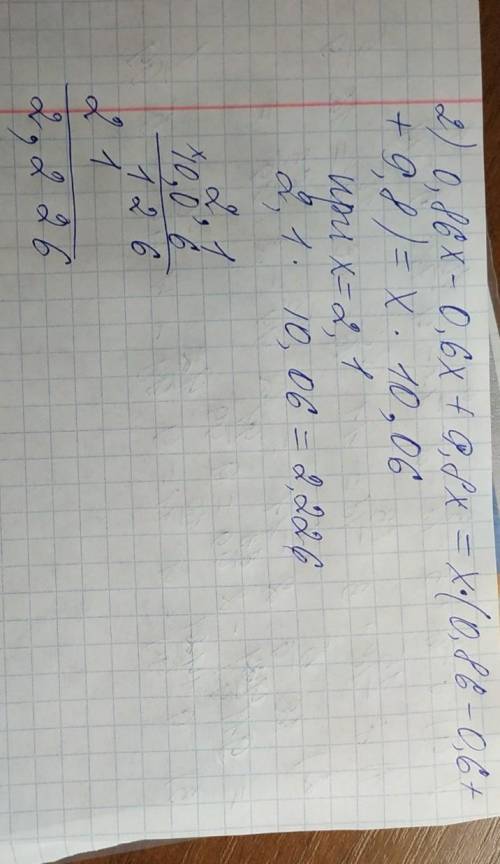 2) 0,86x - 0,6x + 9,8x = x·(0,86 - 0,6 +
+ 9,8) = x · 10,06
при x = 2,1
2,1 · 10,06 = 2,226
2,1
×10,06
126
2 1
2,226